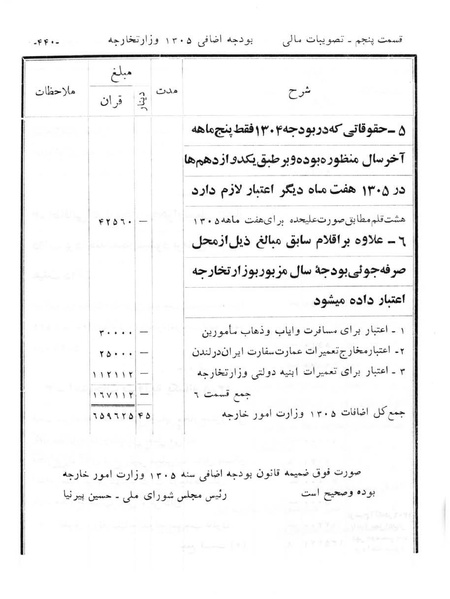 قسمت پنجم ـ تصویبات مالی بودجه اضافی ۱۳۰۵ وزارتخارجه -۴۴۰-
شرح مدت مبلغ ملاحظات
دینار قران
۵ ـ حقوقاتی که در بودجه ۱۳۰۴ فقط پنج ماهه
آخر سال منظور بوده و بر طبق یکدوازدهم‌ها
در ۱۳۰۵ هفت ماه دیگر اعتبار لازم دارد
هشت قلم مطابق صورت علیحده برای هفت ماهه ۱۳۰۵ — ۴۲۵۶۰
۶ ـ علاوه بر اقلام سابق مبالغ ذیل از محل
صرفه جوئی بودجهٔ سال مزبور بوزارتخارجه
اعتبار داده میشود
۱ ـ اعتبار برای مسافرت وایاب وذهاب مأمورین — ۳۰۰۰۰
۲ ـ اعتبار مخارج تعمیرات عمارت سفارت ایران در لندن — ۲۵۰۰۰
۳ ـ اعتبار برای تعمیرات ابنیه دولتی وزارتخارجه — ۱۱۲۱۱۲
جمع قسمت ۶ — ۱۶۷۱۱۲
جمع کل اضافات ۱۳۰۵ وزارت امور خارجه ۴۵ ۶۵۹۶۲۵
صورت فوق ضمیمه قانون بودجه اضافی سنه ۱۳۰۵ وزارت امور خارجه
بوده وصحیح است رئیس مجلس شورای ملی ـ حسین پیرنیا